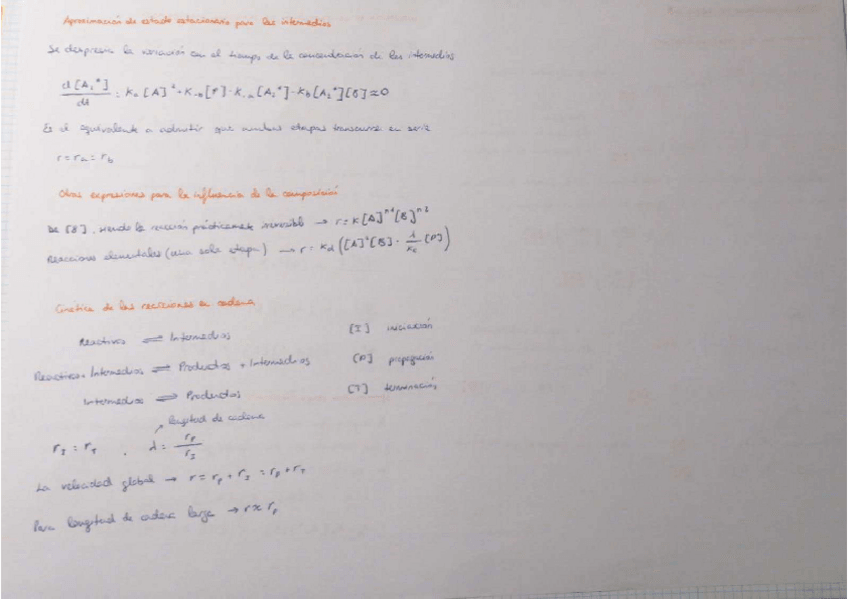 Aproximación de estado estacionario para los intermedios
Se desprecia la variación con el tiempo de la concentración de los intermedios
d[A₂*]/dt = Kₐ[A]² + K₋b[P] - K₋ₐ[A₂*] - Kb[A₂*][B] ≈ 0
Es el equivalente a admitir que ambas etapas transcurre en serie
r = rₐ = r_b
Otras expresiones para la influencia de la composición
De [B], siendo la reacción prácticamente irreversible → r = K[A]ⁿ¹[B]ⁿ²
Reacciones elementales (una sola etapa) → r = K_d ([A]²[B] - 1/K_c [P])
Cinética de las reacciones en cadena
Reactivos ⇌ Intermedios [I] iniciación
Reactivos + Intermedios ⇌ Productos + Intermedios [P] propagación
Intermedios ⇌ Productos [T] terminación
longitud de cadena
r_I = r_T , λ = r_P/r_I
La velocidad global → r = r_P + r_I = r_P + r_T
Para longitud de cadena larga → r ≈ r_P